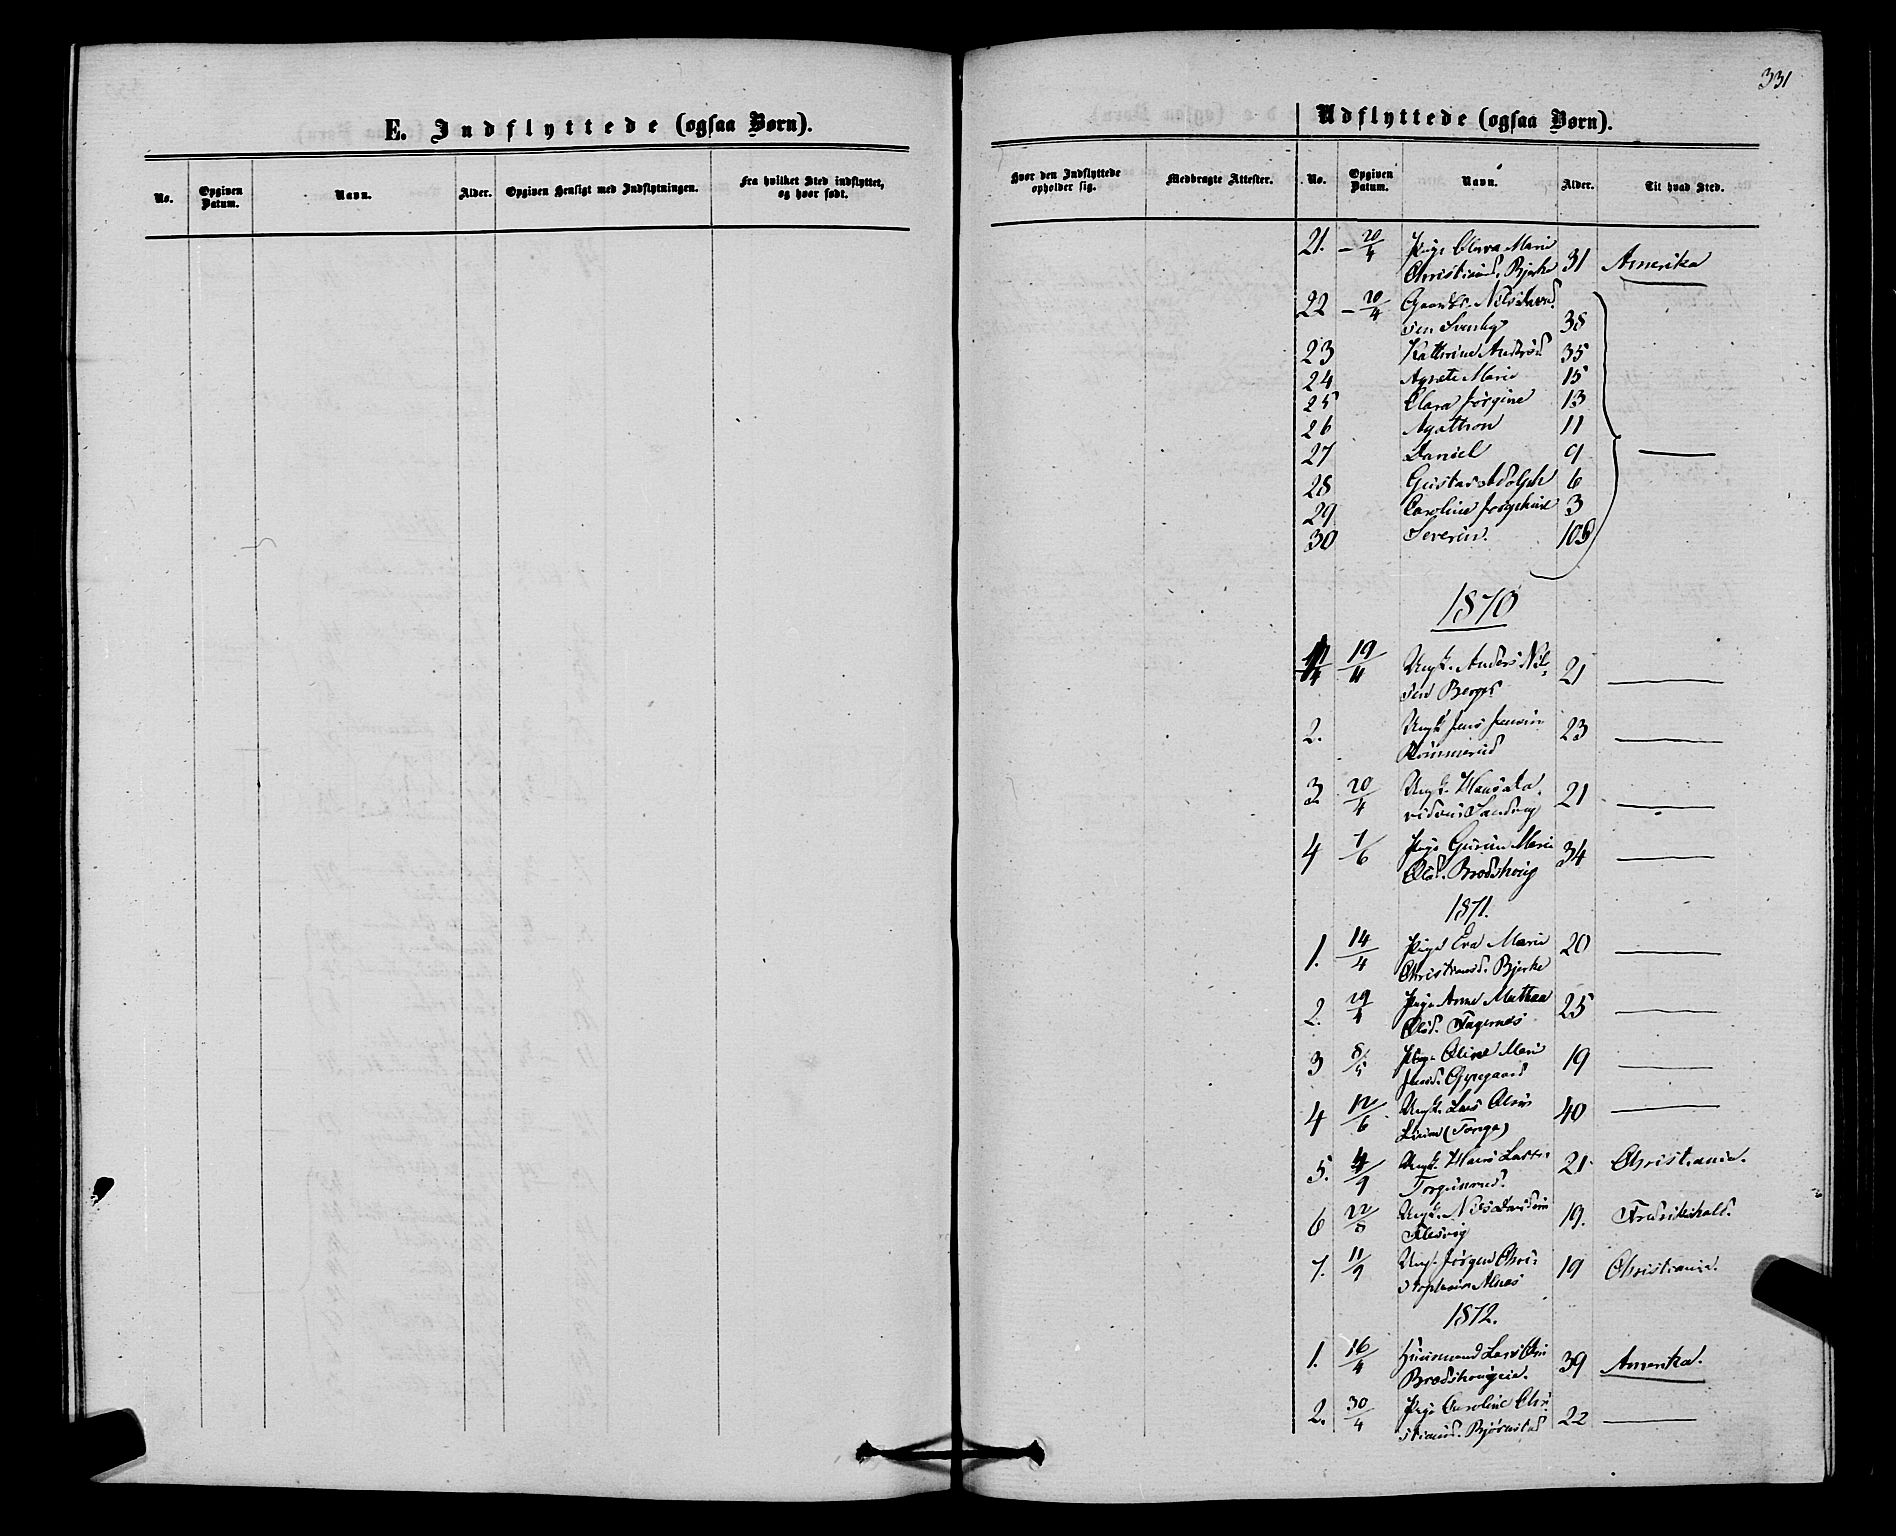 331
E. Indflyttede (ogsaa Børn).
No. Opgiven Datum. Navn. Alder. Opgiven Hensigt med Indflytningen. Fra hvilket Sted indflyttet, og hvor født.
Udflyttede (ogsaa Børn).
Hvor den Indflyttede opholder sig. Medbragte Attester. No. Opgiven Datum. Navn. Alder. Til hvad Sted.
21. – 20/4 Pige Clara Marie
Christiansd. Bjerke 31 Amerika
22 – 20/4 Nils
sen 38
23 Kathrine 35
24 Agnete Marie 15
25 Clara Jørgine 13
26 Agathon 11
27 Daniel 9 —
28 Gustav Adolph 6
29 Caroline Josephine 3
30 Severin. 10
1870
19/4 Ungk. Anders Nil-
sen Berger 21 —
2. Ungk. Jens Jensen
23 —
3. 20/4 Ungk. Hans Da-
vidsen 21 —
4 7/6 Pige Marie
Olsd. Brodshoug 34 —
1871.
1. 14/4 Pige Eva Marie
Christiansd. Bjerke 20 —
2. 29/4 Pige Anne Mathea
Olsd. Fagernes 25 —
3 8/5 Pige Oline Marie
Jensd. 19 —
4 12/6 Ungk. Lars Olsen
40 —
5. 4/9 Ungk. Hans Larsen
21 Christiania.
6 22/8 Ungk. Nils Davidsen
19. Fredrikshald.
7. 11/9 Ung. Jørgen Chri-
stophersen Alnæs 19 Christiania.
1872.
1. 16/4 Huusmand Lars Olsen
Brodshougeie. 39 Amerika.
2. 30/4 Pige Caroline Chri-
stiansd. Bjørnstad 22 —